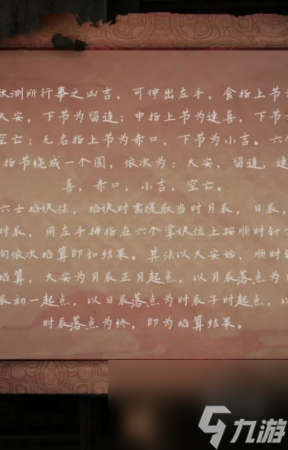 欲测所行事之凶吉，可伸出左手，食指上节为
大安，下节为留连；中指上节为速喜，下节为
空亡；无名指上节为赤口，下节为小吉。六个
指节绕成一个圆，依次为：大安，留连，速
喜，赤口，小吉，空亡。
六壬掐诀法，掐诀时需提取当时月辰，日辰，
时辰，用左手拇指在六个掌诀位上按顺时针方
向依次掐算即知结果。其法以大安始，顺时针
掐算，大安为月辰正月起点，以月辰落点为日
辰初一起点，以日辰落点为时辰子时起点，以
时辰落点为终，即为掐算结果。
九游